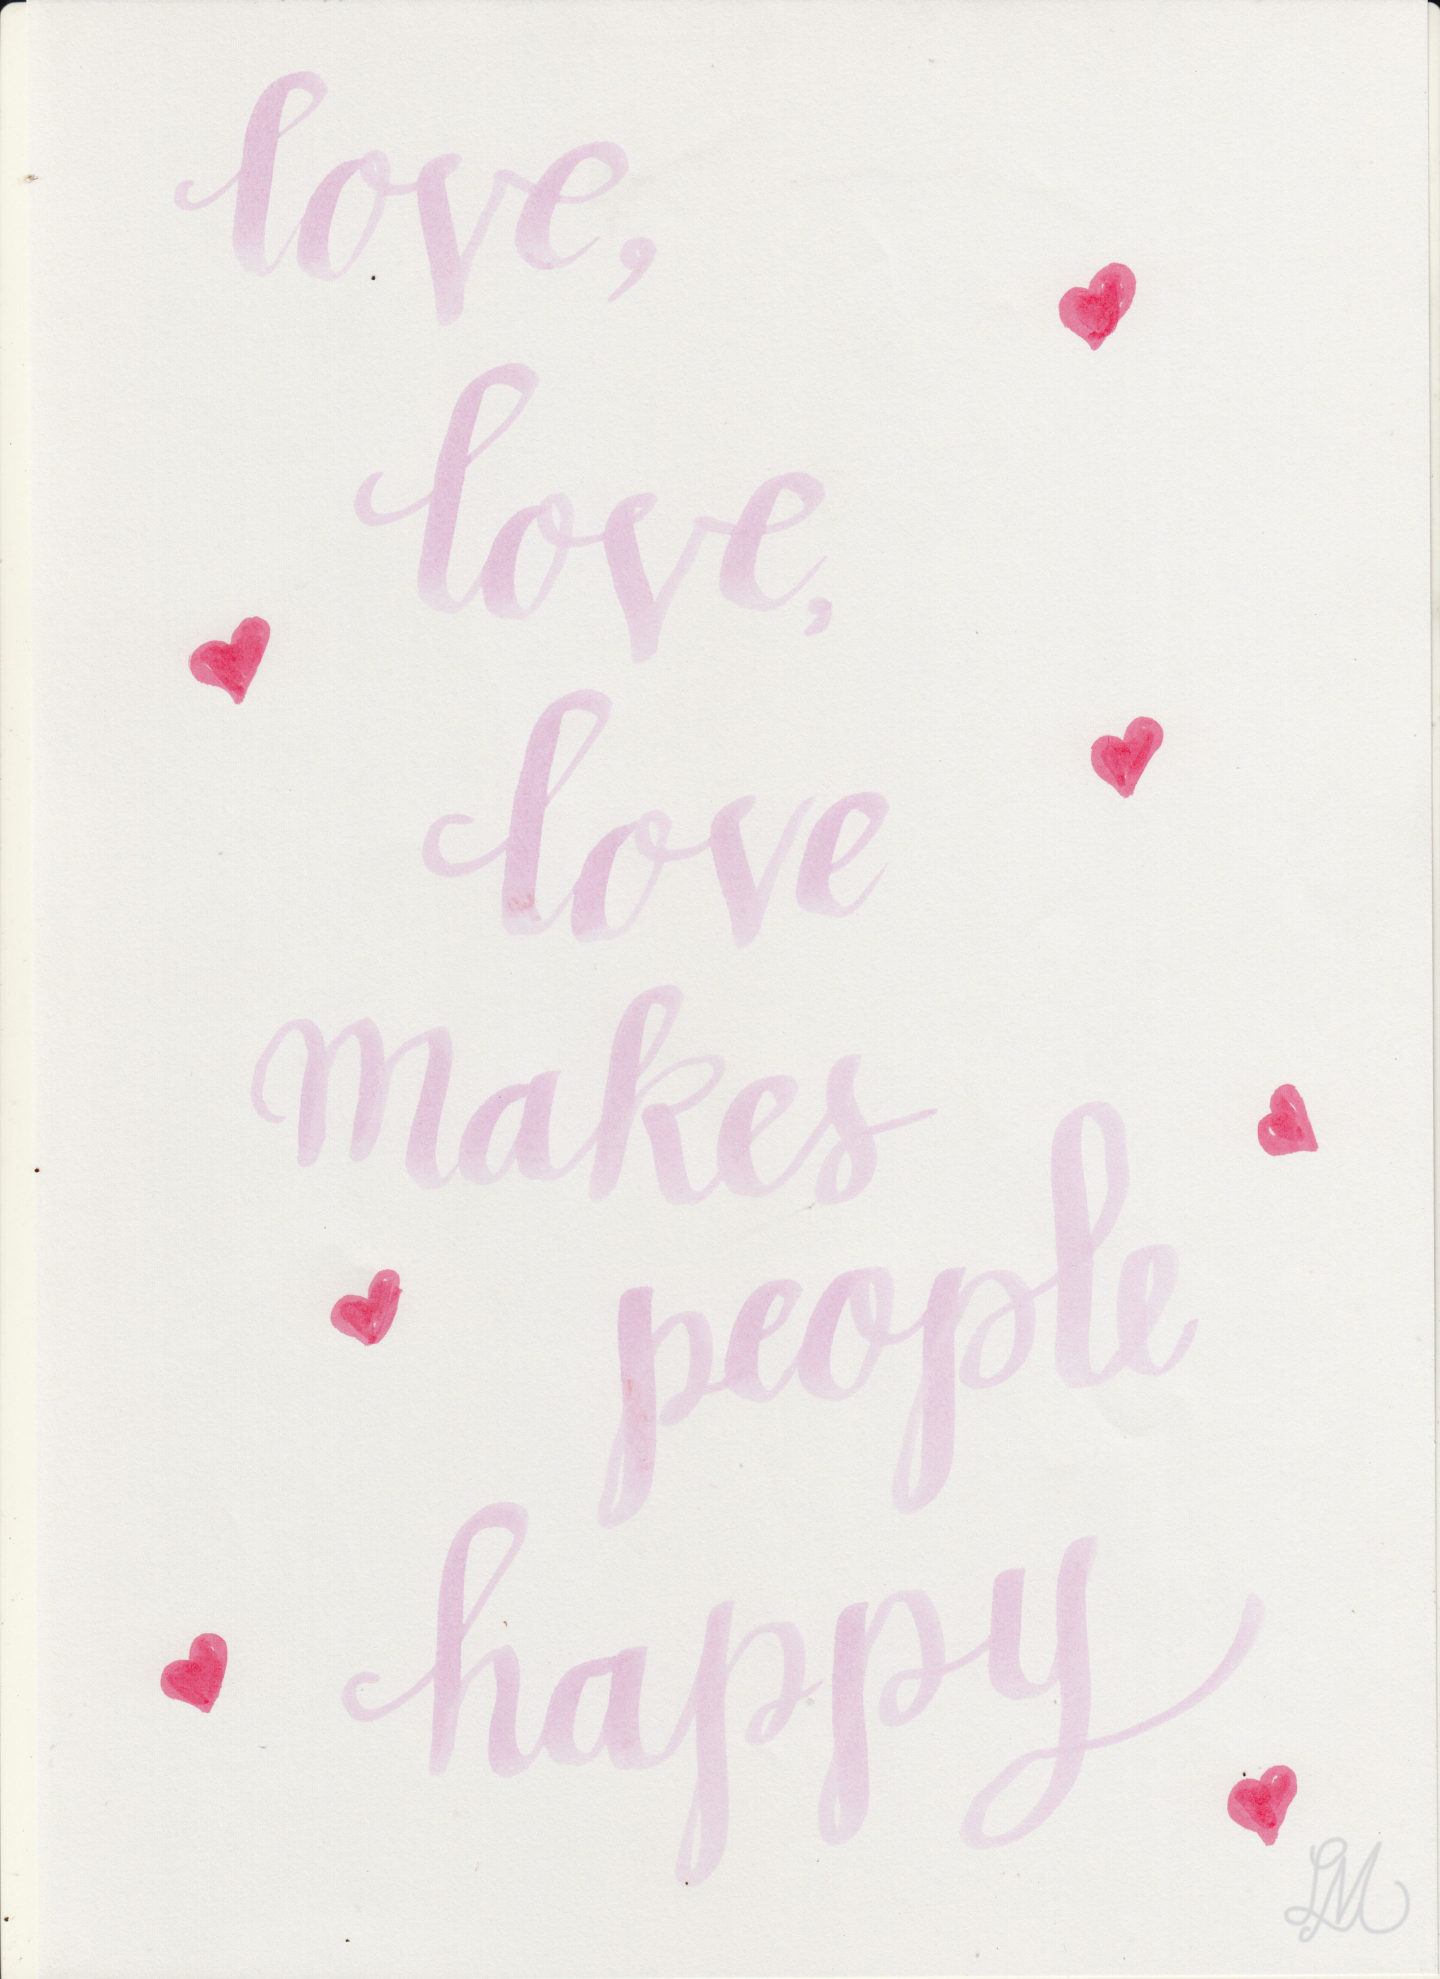 love,
love,
love
makes
people
happy
LM